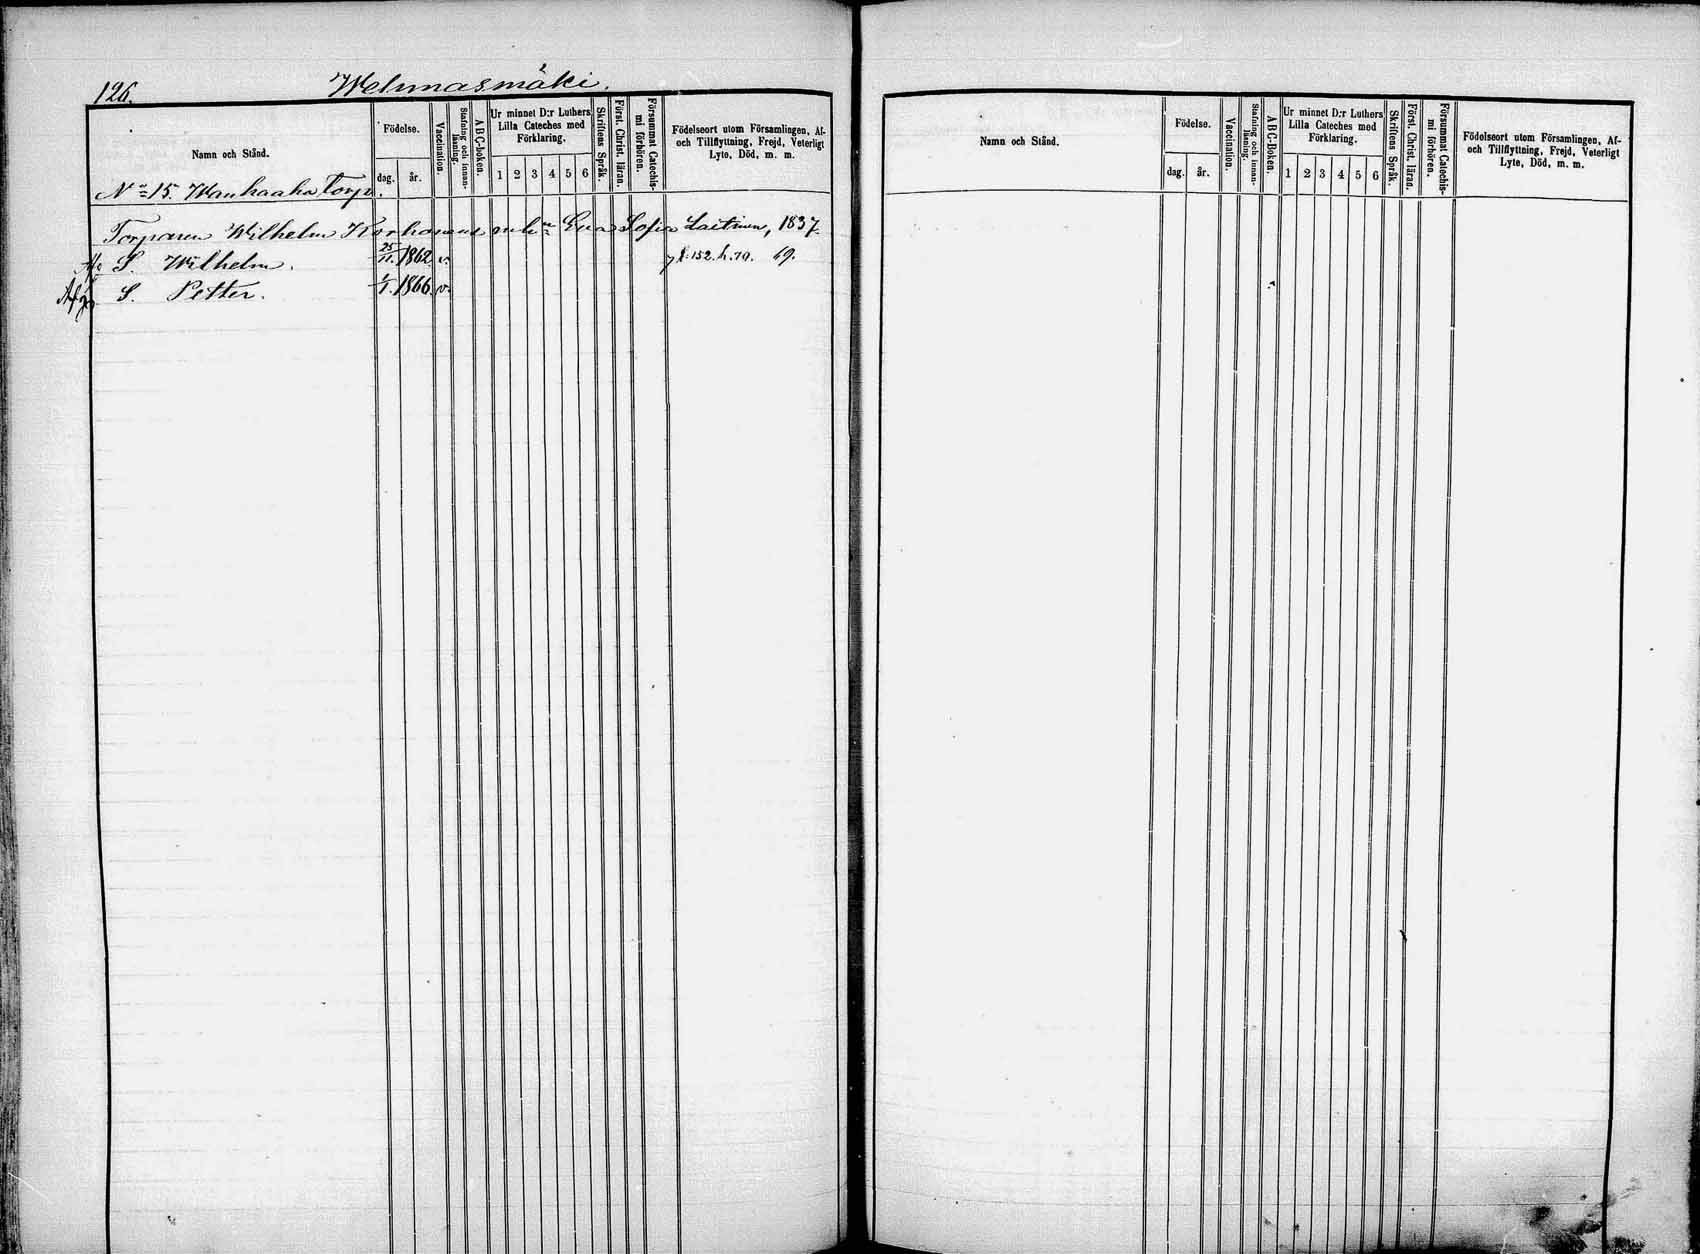 126.
Wehmasmäki.
Namn och Stånd.
Födelse.
dag.
år.
Vaccination.
Stafning och innan-
läsning.
ABC-boken.
Ur minnet D:r Luthers
Lilla Cateches med
Förklaring.
1 2 3 4 5 6
Skriftens Språk.
Först. Christ. läran.
Försummat Catechis-
mi förhören.
Födelseort utom Församlingen, Af-
och Tillflyttning, Frejd, Veterligt
Lyte, Död, m. m.
No 15. Wanhaaha Torp.
Torparen Wilhelm Korhonens enka Eva Sofia Laitinen, 1837.
S. Wilhelm. 25/11. 1862. v. fl. 152. h. 79. 69.
Afg. S. Petter. 1/1. 1866. v.
Namn och Stånd.
Födelse.
dag.
år.
Vaccination.
Stafning och innan-
läsning.
ABC-Boken.
Ur minnet D:r Luthers
Lilla Cateches med
Förklaring.
1 2 3 4 5 6
Skriftens Språk.
Först. Christ. läran.
Försummat Catechis-
mi förhören.
Födelseort utom Församlingen, Af-
och Tillflyttning, Frejd, Veterligt
Lyte, Död, m. m.